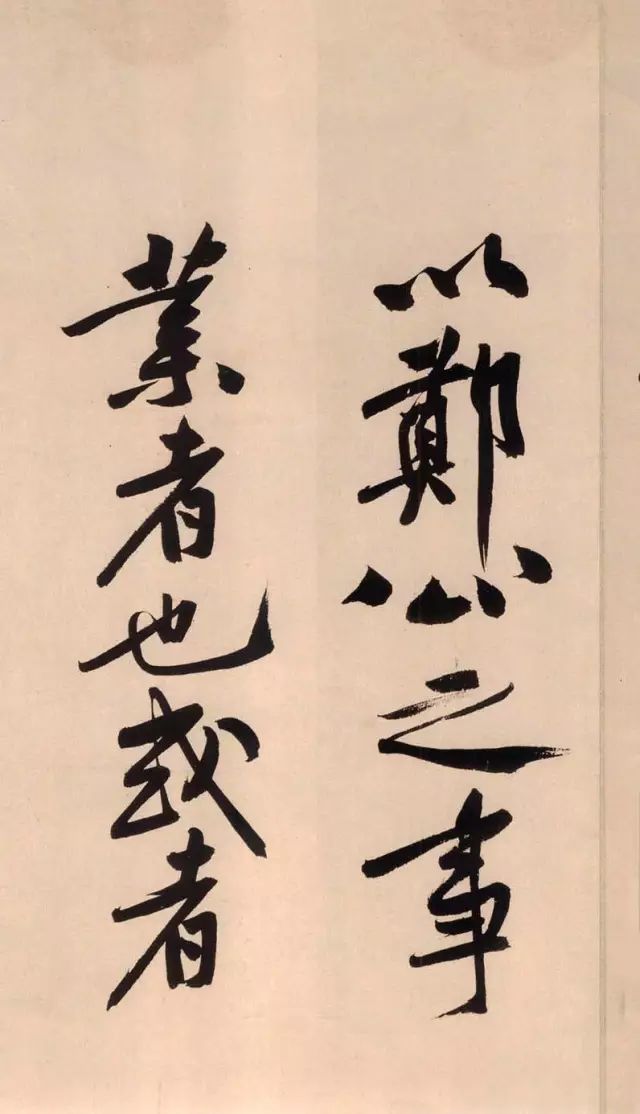 以鄭公之事
業者也或者